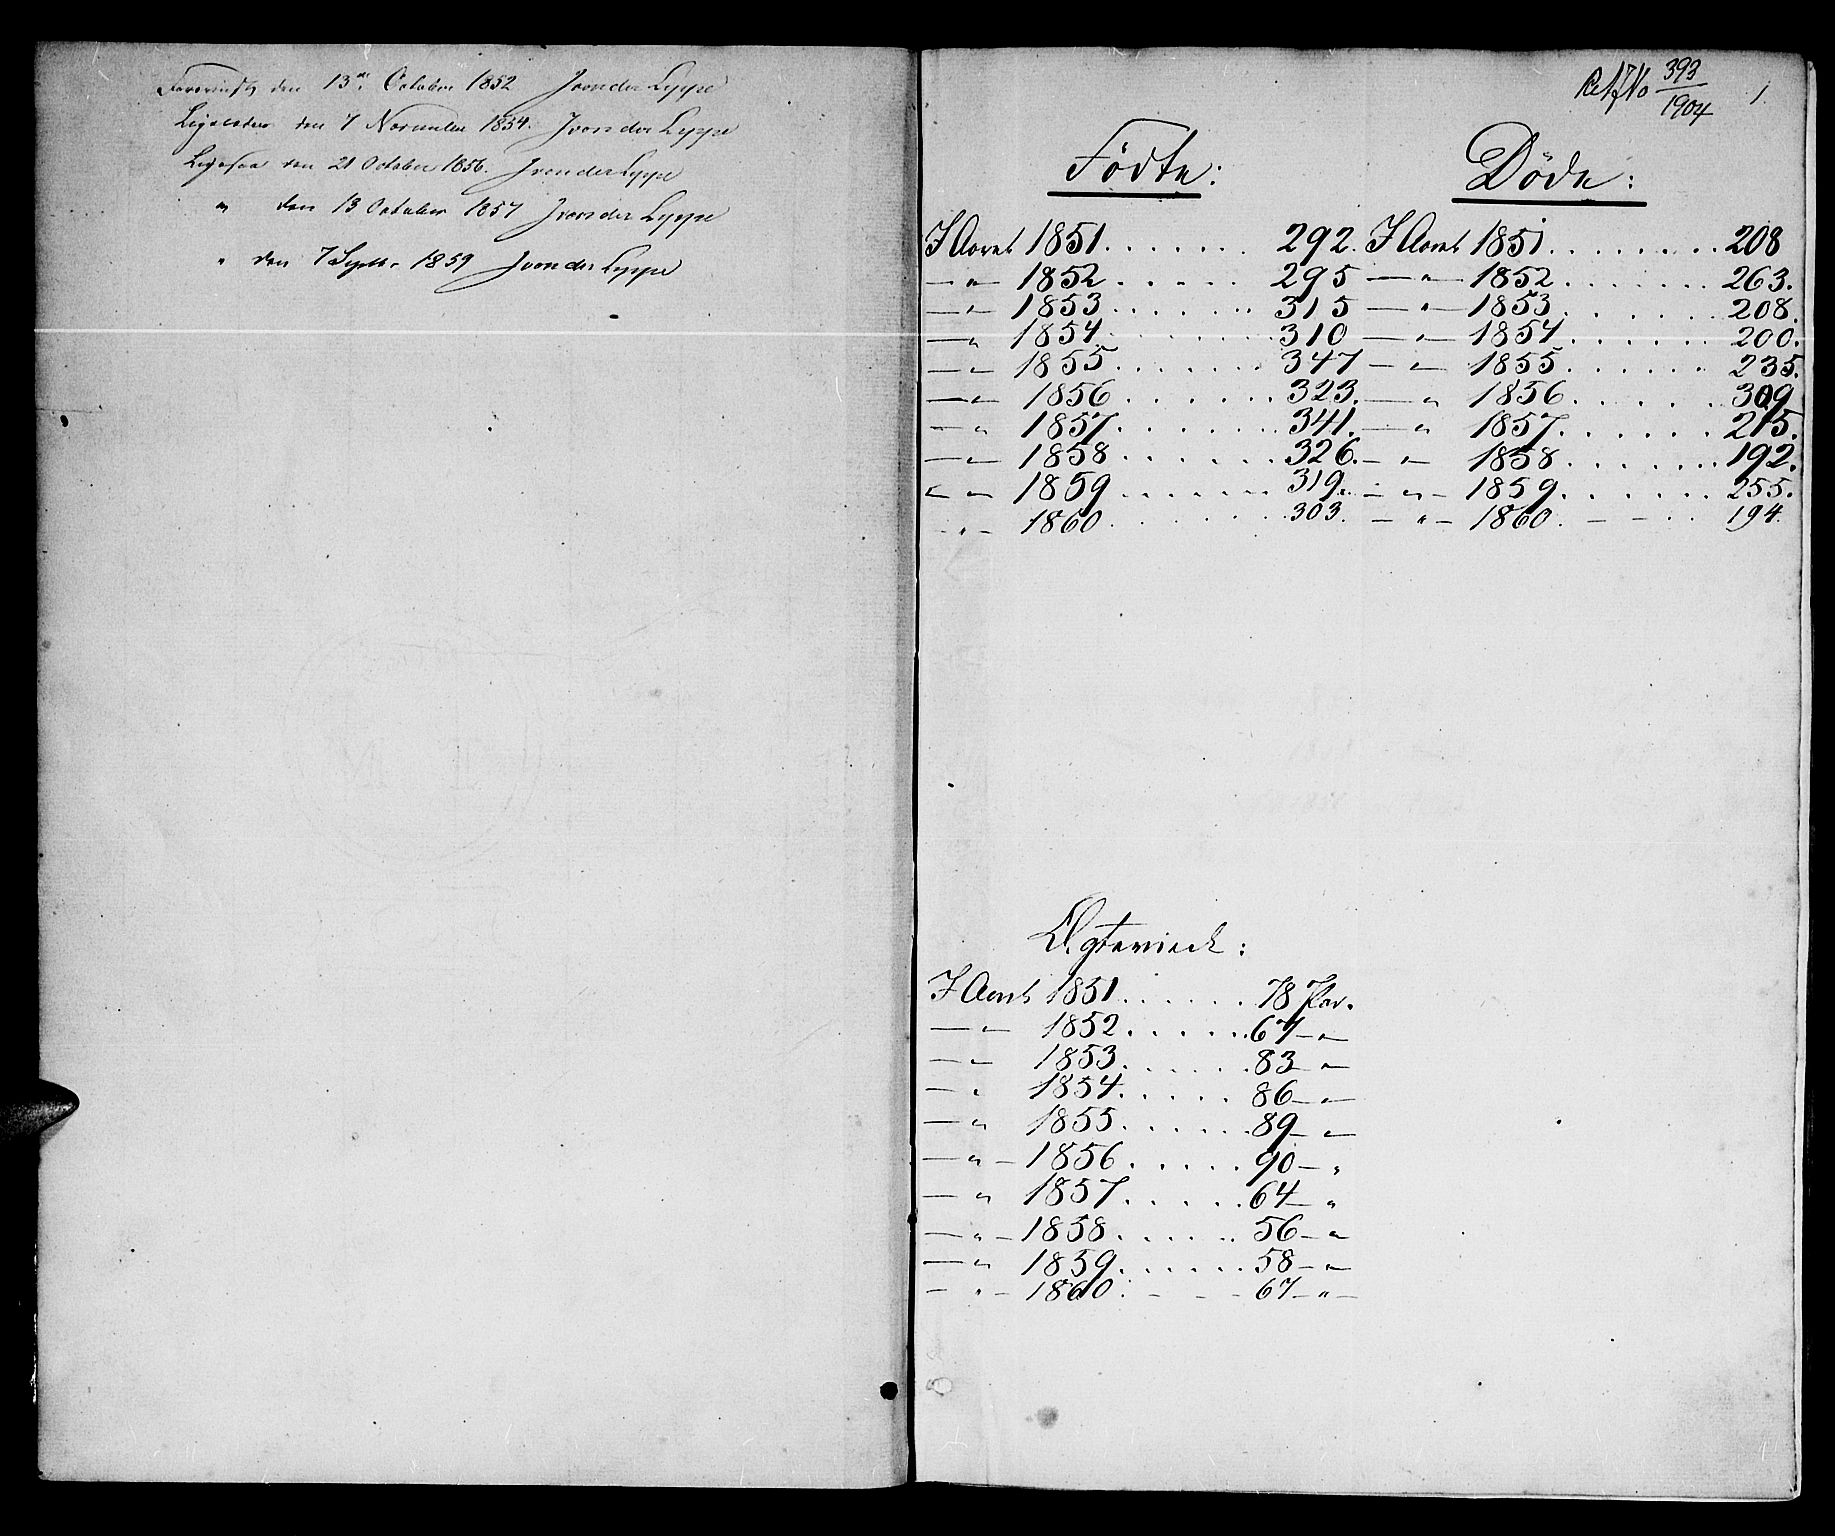 Foreviist den 13de October 1852 J von der Lippe
Ligeledes den 7 November 1854. J von der Lippe
Ligesaa den 21 October 1856. J von der Lippe
" den 13 October 1857 J von der Lippe
" den 7 Septbr 1859 J von der Lippe
No 393/1904 1.
Födte: Döde:
I Aaret 1851 . . . . . . 292. I Aaret 1851 . . . . . . . 208
— " — 1852 . . . . . 295 — " — 1852 . . . . . . . 263.
— " — 1853 . . . . . . . 315 — " — 1853 . . . . . . 208.
— " 1854 . . . . . . . 310 — " — 1854 . . . . . . 200.
— " — 1855 . . . . . . . 347 — " — 1855 . . . . . . 235.
— " — 1856 . . . . . . 323. — " 1856 . . . . . 309
— " 1857 . . . . . . . 341. — " 1857 . . . . . . 215.
— " — 1858 . . . . . . 326. — " — 1858 . . . . . . 192.
" " — 1859 . . . . . . . 319. — " — 1859 . . . . . . 255.
— " — 1860 . . . . . . 303. — " — 1860 . — — . . 194.
Ægteviede:
I Aaret 1851 . . . . . . 78 Par.
— " — 1852 . . . . . . 67 — "
— " — 1853 . . . . . . 83 — "
— " 1854 . . . . . . 86 — " —
— " 1855 . . . . . . 89 — " —
— " — 1856 . . . . . 90 — "
— " 1857 . . . . . 64 — "
— " — 1858 . . . . . . 56 — "
— " 1859 . . . . . . 58 — "
— " — 1860 . — — — 67 — " —